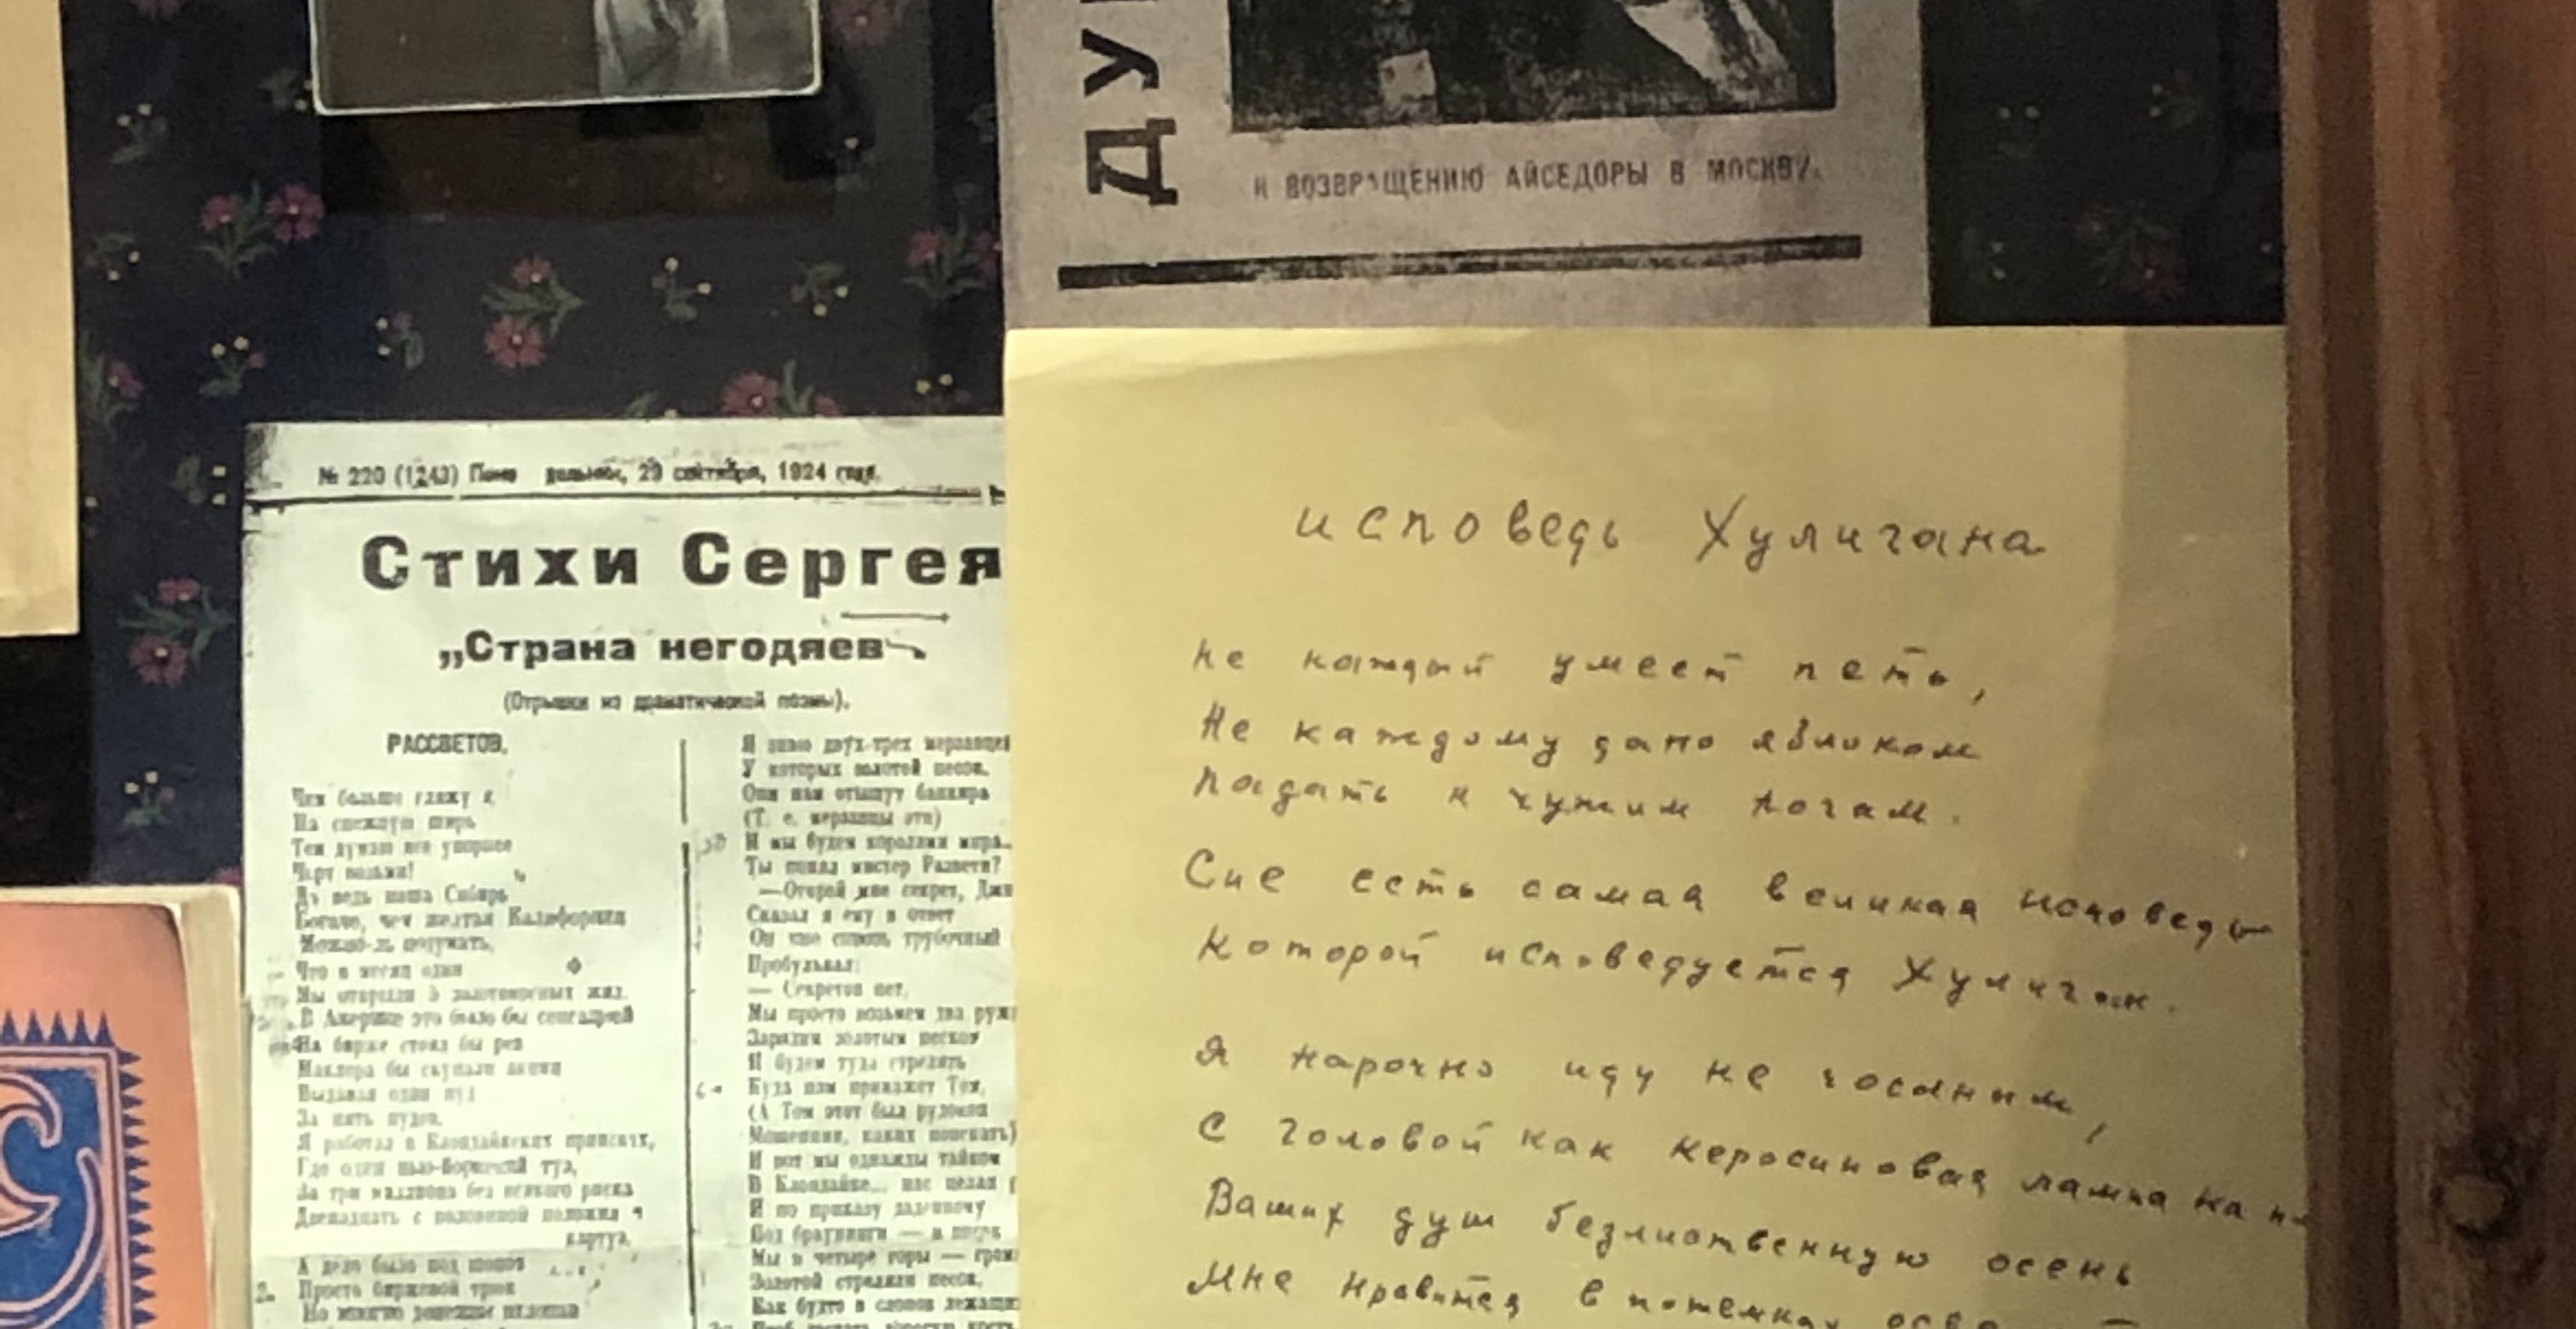 ДУ
К ВОЗВРАЩЕНИЮ АЙСЕДОРЫ В МОСКВУ.
№ 220 (1243) Поне дельник, 29 сентября, 1924 года.
Стихи Сергея
„Страна негодяев"
(Отрывки из драматической поэмы).
РАССВЕТОВ.
Чем больше гляжу я
На снежную ширь
Тем думаю все упорнее
Чорт возьми!
Да ведь наша Сибирь
Богаче, чем желтая Калифорния
Можно-ль подумать,
Что в месяц один
Мы открыли 5 золотоносных жил.
В Америке это было бы сенсацией
На бирже стоял бы рев
Маклера бы скупали акции
Выдавая один пуд
За пять пудов.
Я работал в Клондайкских приисках,
Где один нью-йоркский туз,
За три миллиона без всякого риска
Двенадцать с половиной положил в
картуз.
А дело было под шопот
Просто биржевой трюк
Но многие денежки вхлопав
Я знаю двух-трех мерзавцев
У которых золотой песок,
Они нам отыщут банкира
(Т. е. мерзавцы эти)
И мы будем королями мира..
Ты понял мистер Развети?
—Открой мне секрет, Джи
Сказал я ему в ответ
Он мне сквозь трубочный
Пробулькал:
— Секретов нет.
Мы просто возьмем два руж
Зарядим золотым песком
И будем туда стрелять
Куда нам прикажет Том.
(А Том этот был рудокоп
Мошенник, каких поискать)
И вот мы однажды тайком
В Клондайке... нас целая
И по приказу даденному
Под браунинги — в
Мы в четыре горы —
Золотой стреляли песок,
Как будто в слонов лежащи
исповедь Хулигана
Не каждый умеет петь,
Не каждому дано яблоком
Падать к чужим ногам.
Сие есть самая великая исповедь
Которой исповедуется Хулиган.
Я нарочно иду не чосаным,
С головой как керосиновая лампа на
Ваших душ безлиственную осень
Мне нравится в потемках